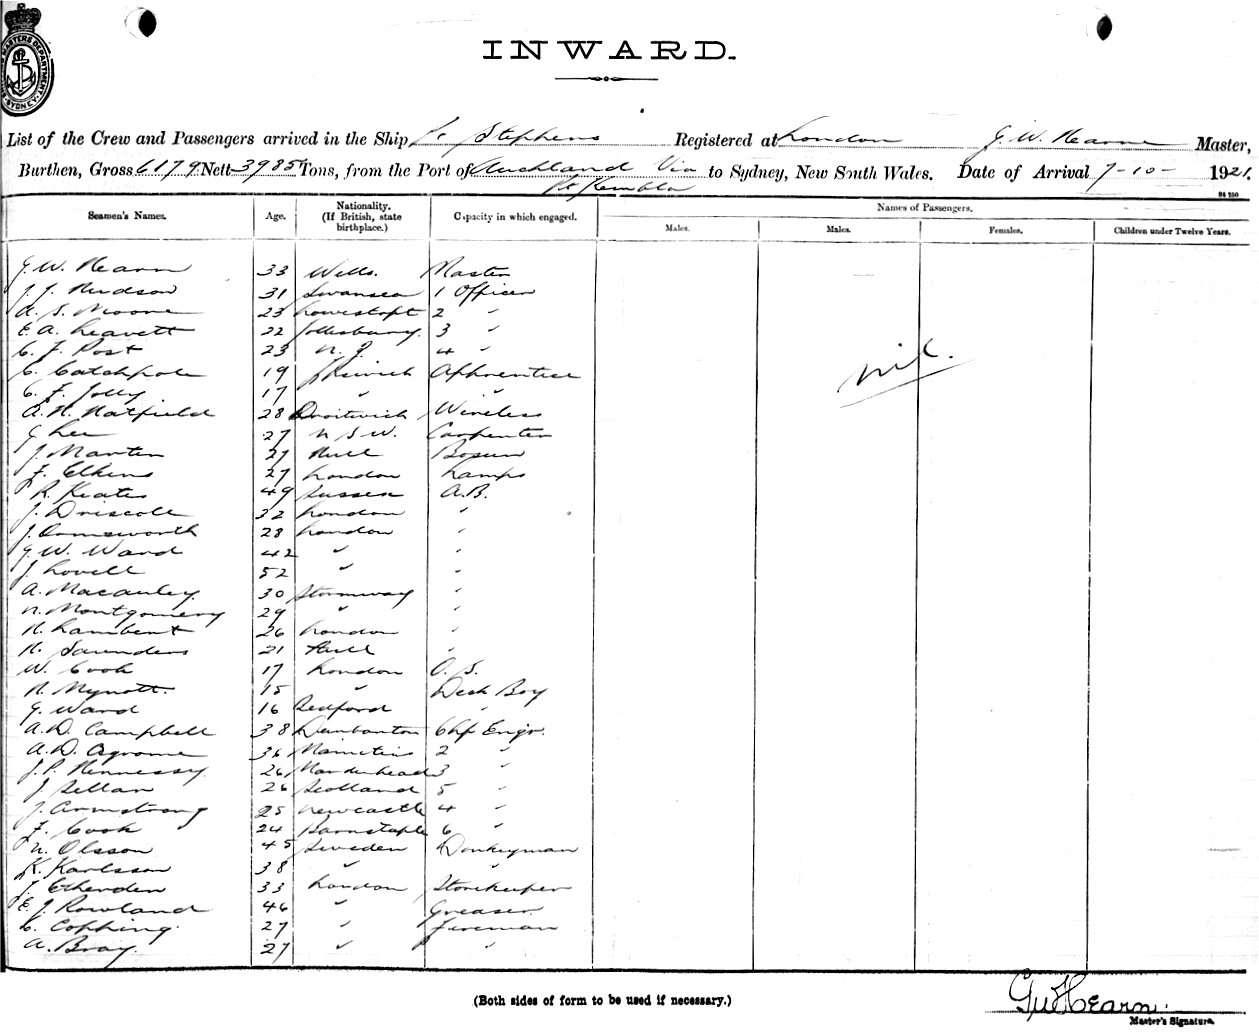 MASTERS DEPARTMENT SYDNEY
INWARD.
List of the Crew and Passengers arrived in the Ship Pt Stephens Registered at London G. W. Hearn Master,
Burthen, Gross 6179 Nett 3985 Tons, from the Port of Auckland Via to Sydney, New South Wales. Date of Arrival 7-10- 1921.
Pt Kembla
Seamen's Names. Age. Nationality. (If British, state birthplace.) Capacity in which engaged. Names of Passengers.
Males. Males. Females. Children under Twelve Years.
G. W. Hearn 33 Wells. Master
J. J. Hudson 31 Swansea 1 Officer
A. S. Moore 23 Lowestoft 2 "
E. A. Leavett 22 Tollesbury. 3 "
C. F. Post 23 N. Z. 4 "
C. Catchpole 19 Ipswich Apprentice
C. F. Jolly 17 " "
A. H. Hatfield 28 Droitwich Wireless
G Lee 27 N. S. W. Carpenter
J. Marten 27 Hull Bosun
F. Elkins 27 London Lamps
R. Keates 49 Sussex A.B.
J. Driscoll 32 London "
J. Ormsworth 28 London "
G. W. Ward 42 " "
J. Lovell 52 " "
A. Macauley. 30 Stornway "
N. Montgomery 29 " "
H. Lambert 26 London "
H. Saunders 21 Hull "
W. Cook 17 London O. S.
H. Mynott. 15 " Deck Boy
G. Ward 16 Bedford "
A. D. Campbell 38 Dumbarton Chf Engr.
A. D. 36 2 "
J. P. Hennessy 26 3 "
J. Sellar 26 Scotland 5 "
J. Armstrong 25 Newcastle 4 "
F. Cook 24 Barnstaple 6 "
N. Olsson 45 Sweden Donkeyman
K. Karlsson 38 " "
J. Etherden 33 London Storekeeper
E. J. Rowland 46 " Greaser
C. Copping. 27 " Fireman
A. Bray. 27 " "
nil.
(Both sides of form to be used if necessary.)
G W Hearn.
Master's Signature.